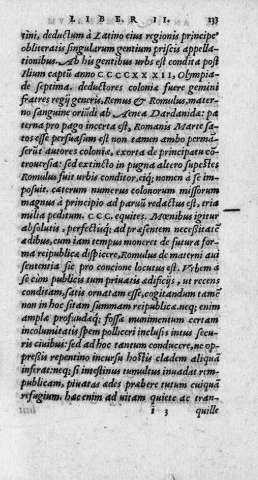 LIBER II. 133
tini, deductum à Latino eius regionis principe
obliteratis singularum gentium priscis appella
tionibus. Ab his gentibus urbs est condita post
Ilium captũ anno CCCCXXXII, Olympia-
de septima. deductores coloniæ fuere gemini
fratres regij generis, Remus & Romulus, mater-
no sanguine oriũdi ab Aenea Dardanidæ: pa
terna pro pago incerta est, Romanis Marte sa-
tos esse persuasum est non tamen ambo perma-
serũt autores coloniæ, exorta de principatu cõ-
trouersia: sed extincto in pugna altero supestes
Romulus fuit urbis conditor, eiq; nomen à se im
posuit. cæterum numerus colonorum missorum
magnus à principio ad paruũ redactus est, tria
milia peditum. CCC. equites. Mœnibus igitur
absolutis, perfectisq; ad præsentem necessitatẽ
ædibus, cum iam tempus moneret de futura for
ma reipublicæ dispicere, Romulus de materni aui
sententia sic pro concione locutus est. Vrbem à
se cum publicis tum priuatis ædificijs, ut recens
conditam, satis ornatam esse, cogitandum tamẽ
non in hoc sitam summam reipublicæ. neq; enim
amplæ profundæq; fossæ munimentum certam
incolumitatis spem polliceri inclusis intus secu-
ris ciuibus: sed ad hoc tantum conducere, ne op-
pressis repentino incursu hostis cladem aliquã
inferat: neq; si intestinus tumultus inuadat rem-
publicam, priuatas ædes præbere tutum cuiquã
refugium. hæc enim ad uitam quiete ac tran-
i 3 quille